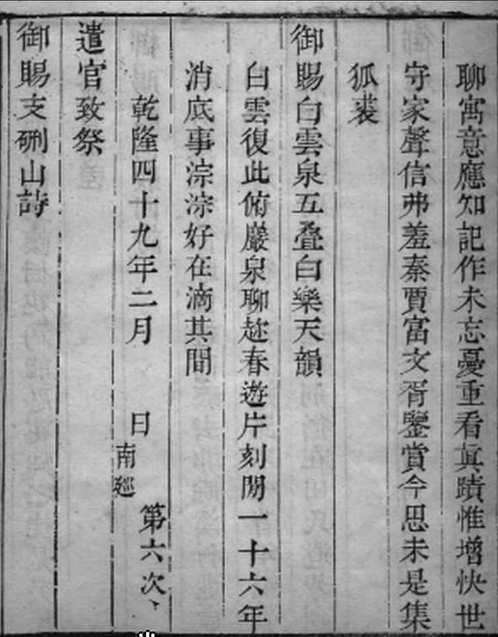 聊寓意應知記作未忘憂重看眞蹟惟增快世
守家聲信弗羞秦賈富文胥鑒賞今思未是集
狐裘
御賜白雲泉五疊白樂天韻
白雲復此俯巖泉聊趂春遊片刻閒一十六年
消底事淙淙好在滴其間
乾隆四十九年二月 日南廵第六次、
遣官致祭
御賜支硎山詩